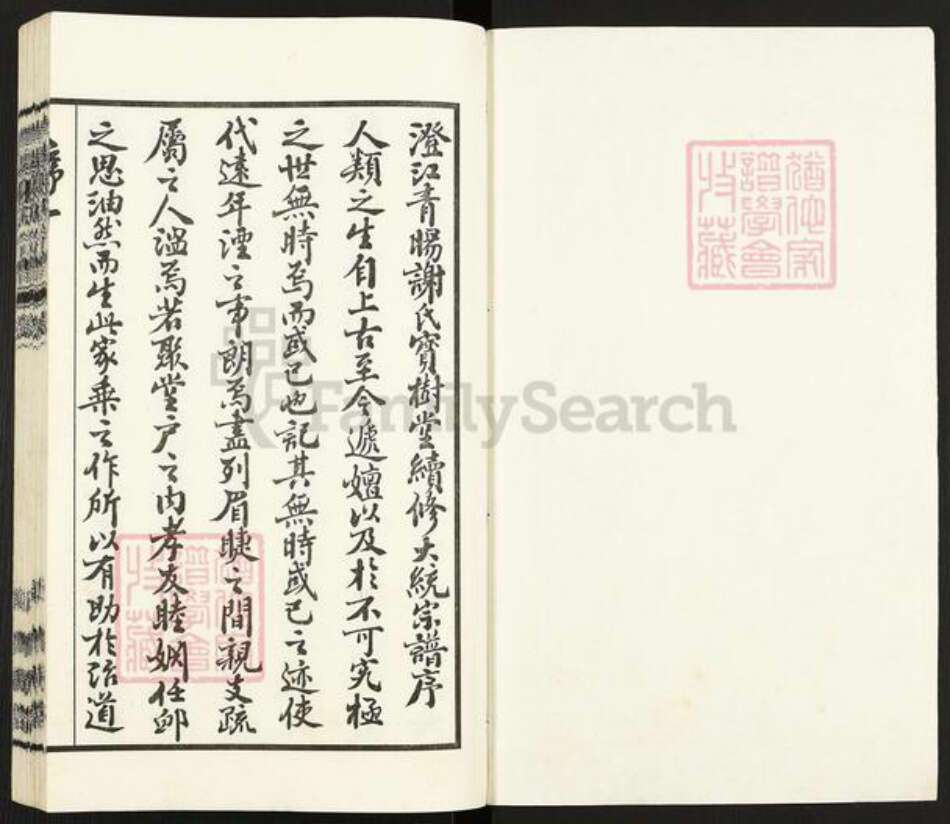 澄江青暘謝氏寶樹堂續修大統宗譜序
人類之生自上古至今遞嬗以及於不可究極
之世無時焉而或已也記其無時或已之迹使
代遠年湮之事朗焉盡列眉睫之間親支疏
屬之人溫焉若聚堂戶之內孝友睦婣任卹
之思油然而生此家乘之作所以有助於治道
序
一
猶他家
譜學會
收藏
猶他家
譜學會
收藏
FamilySearch